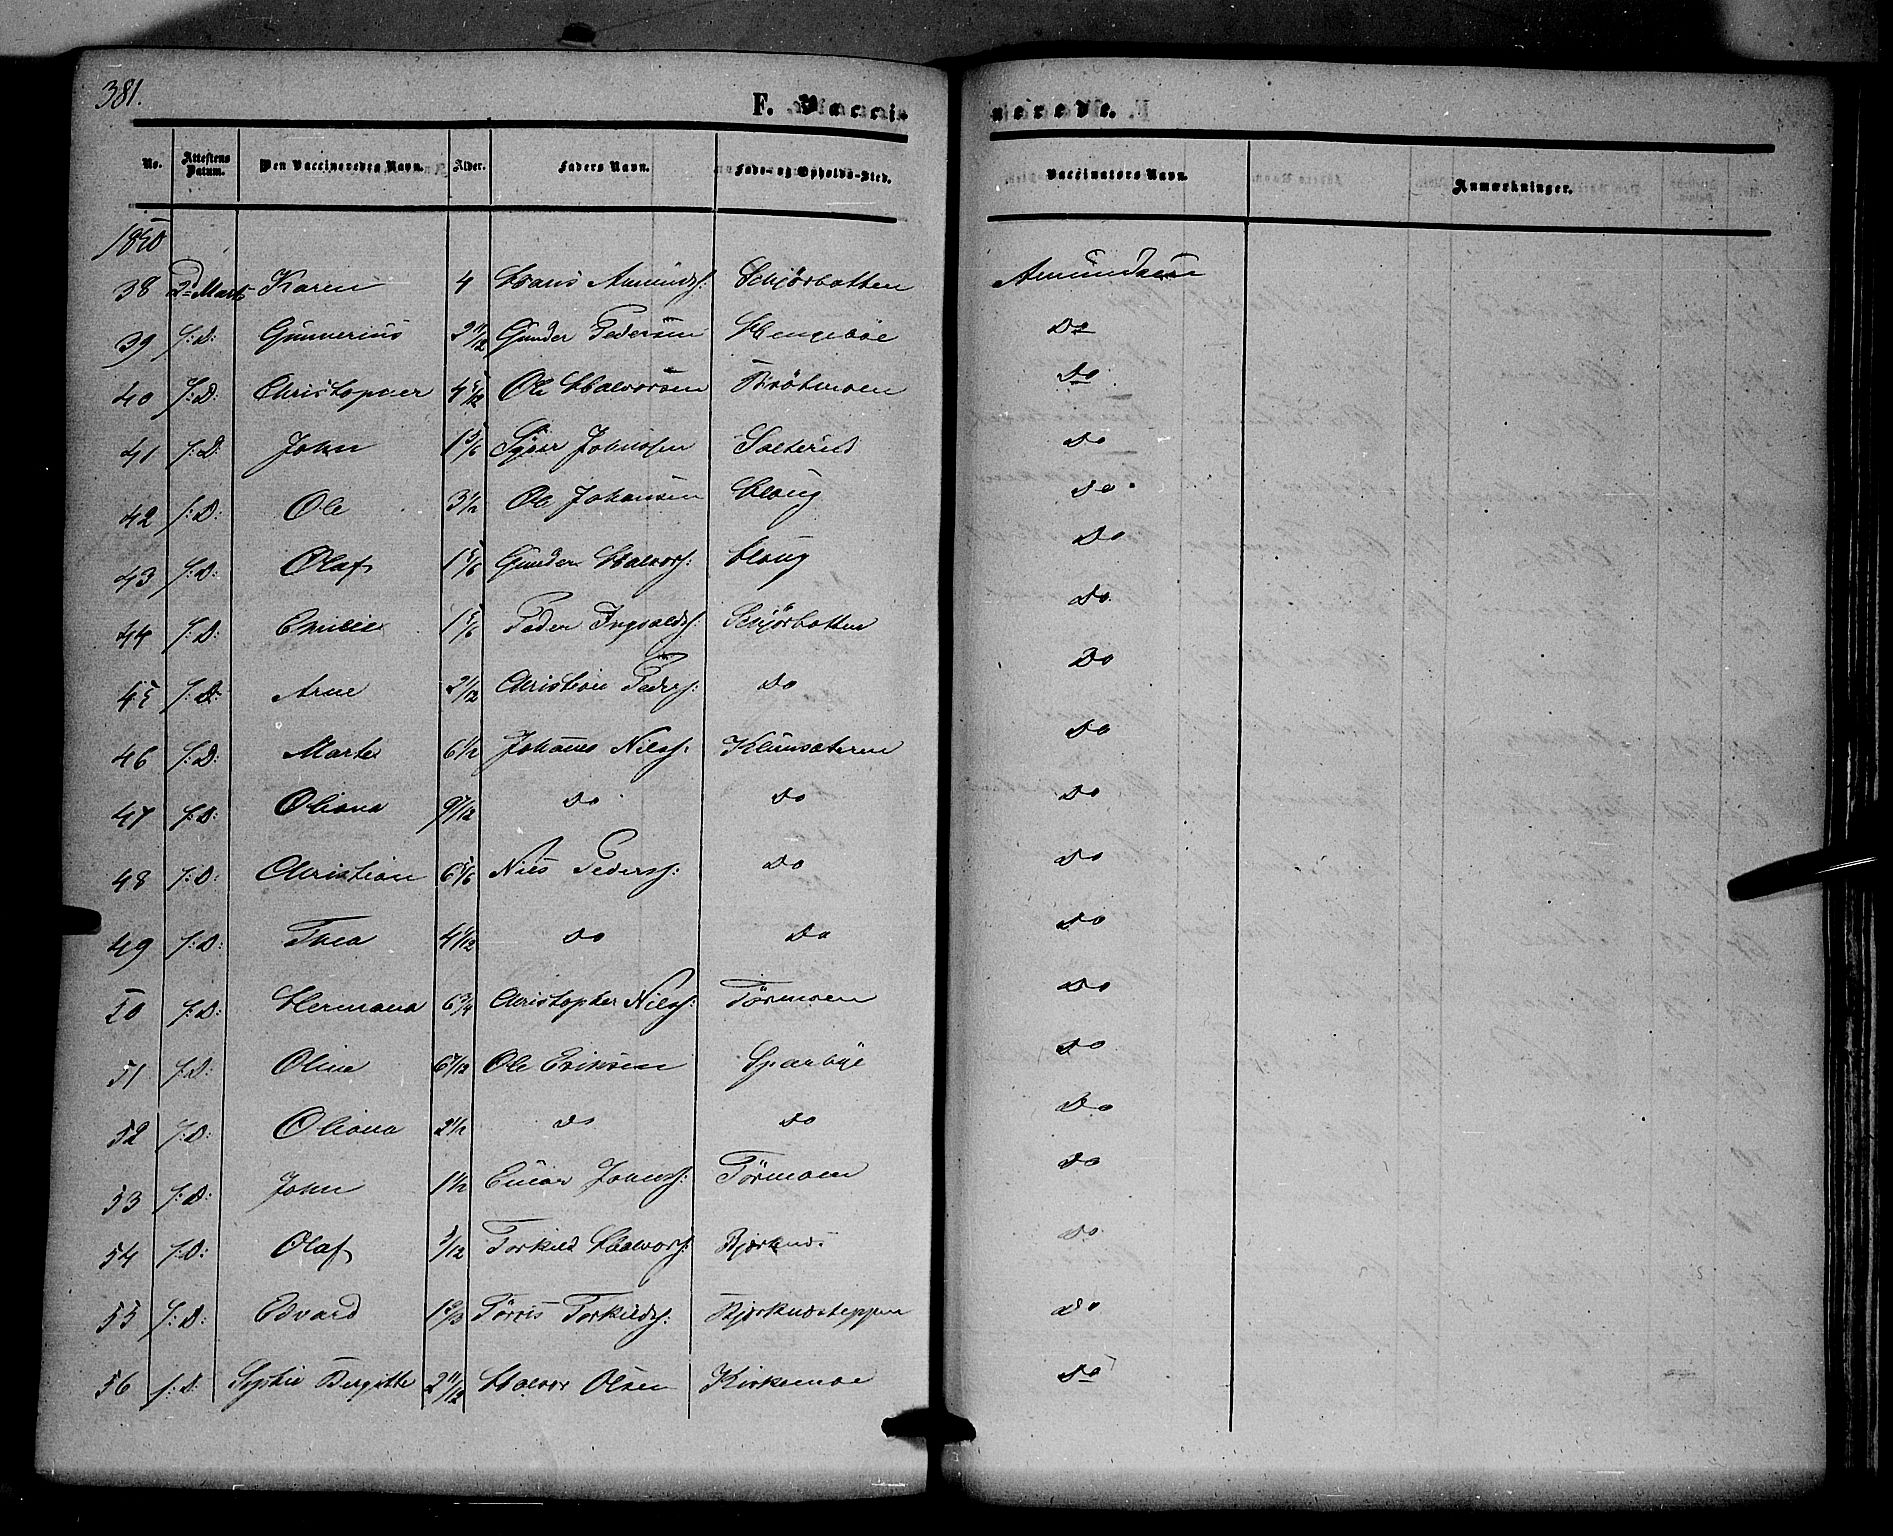 381.
F. Vaccinerede.
No. Attestens Datum. Den Vaccineredes Navn. Alder. Faders Navn. Føde- og Opholds-Sted. Vaccinators Navn. Anmærkninger.
1850
38 2 Marts Karen 4 Hans Amunds: Schjørbotten Amundsen
39 S:D: Gunnerius 2 11/12 Gunder Pedersen Do
40 S:D: Christopher 4 5/12 Ole Halvorsen Brøtmoen Do
41 S:D: John 1 5/6 Syver Johnssen Sæterud Do
42 S:D: Ole 3 1/2 Ole Johansen Haug Do
43 S:D: Olaf 1 5/6 Gunder Halvors: Haug Do
44 S:D: Emilie 1 5/6 Peder Ingvalds: Schjørbotten Do
45 S:D: Arne 2 1/12 Christian Peders: Do Do
46 S:D: Marte 6 1/2 Johannes Nilss: Do
47 S:D: Oliana 9 7/12 Do Do Do
48 S:D: Christian 6 5/6 Nils Peders: Do Do
49 S:D: Thea 4 1/12 Do Do Do
50 S:D: Hermana 6 3/4 Christopher Nilss: Tørmoen Do
51 S:D: Oline 6 7/12 Ole Eriksen Sparbye Do
52 S:D: Oliana 2 1/2 Do Do Do
53 S:D: John 1 1/2 Einar Johnss: Tørmoen Do
54 S:D: Olaf 5/12 Torkild Halvors: Do
55 S:D: Edvard 1 2/3 Tørris Torkilds: Bjørkudsteppen Do
56 S:D: Sophie Bergitte 2 11/12 Halvor Olsen Kirkemoe Do